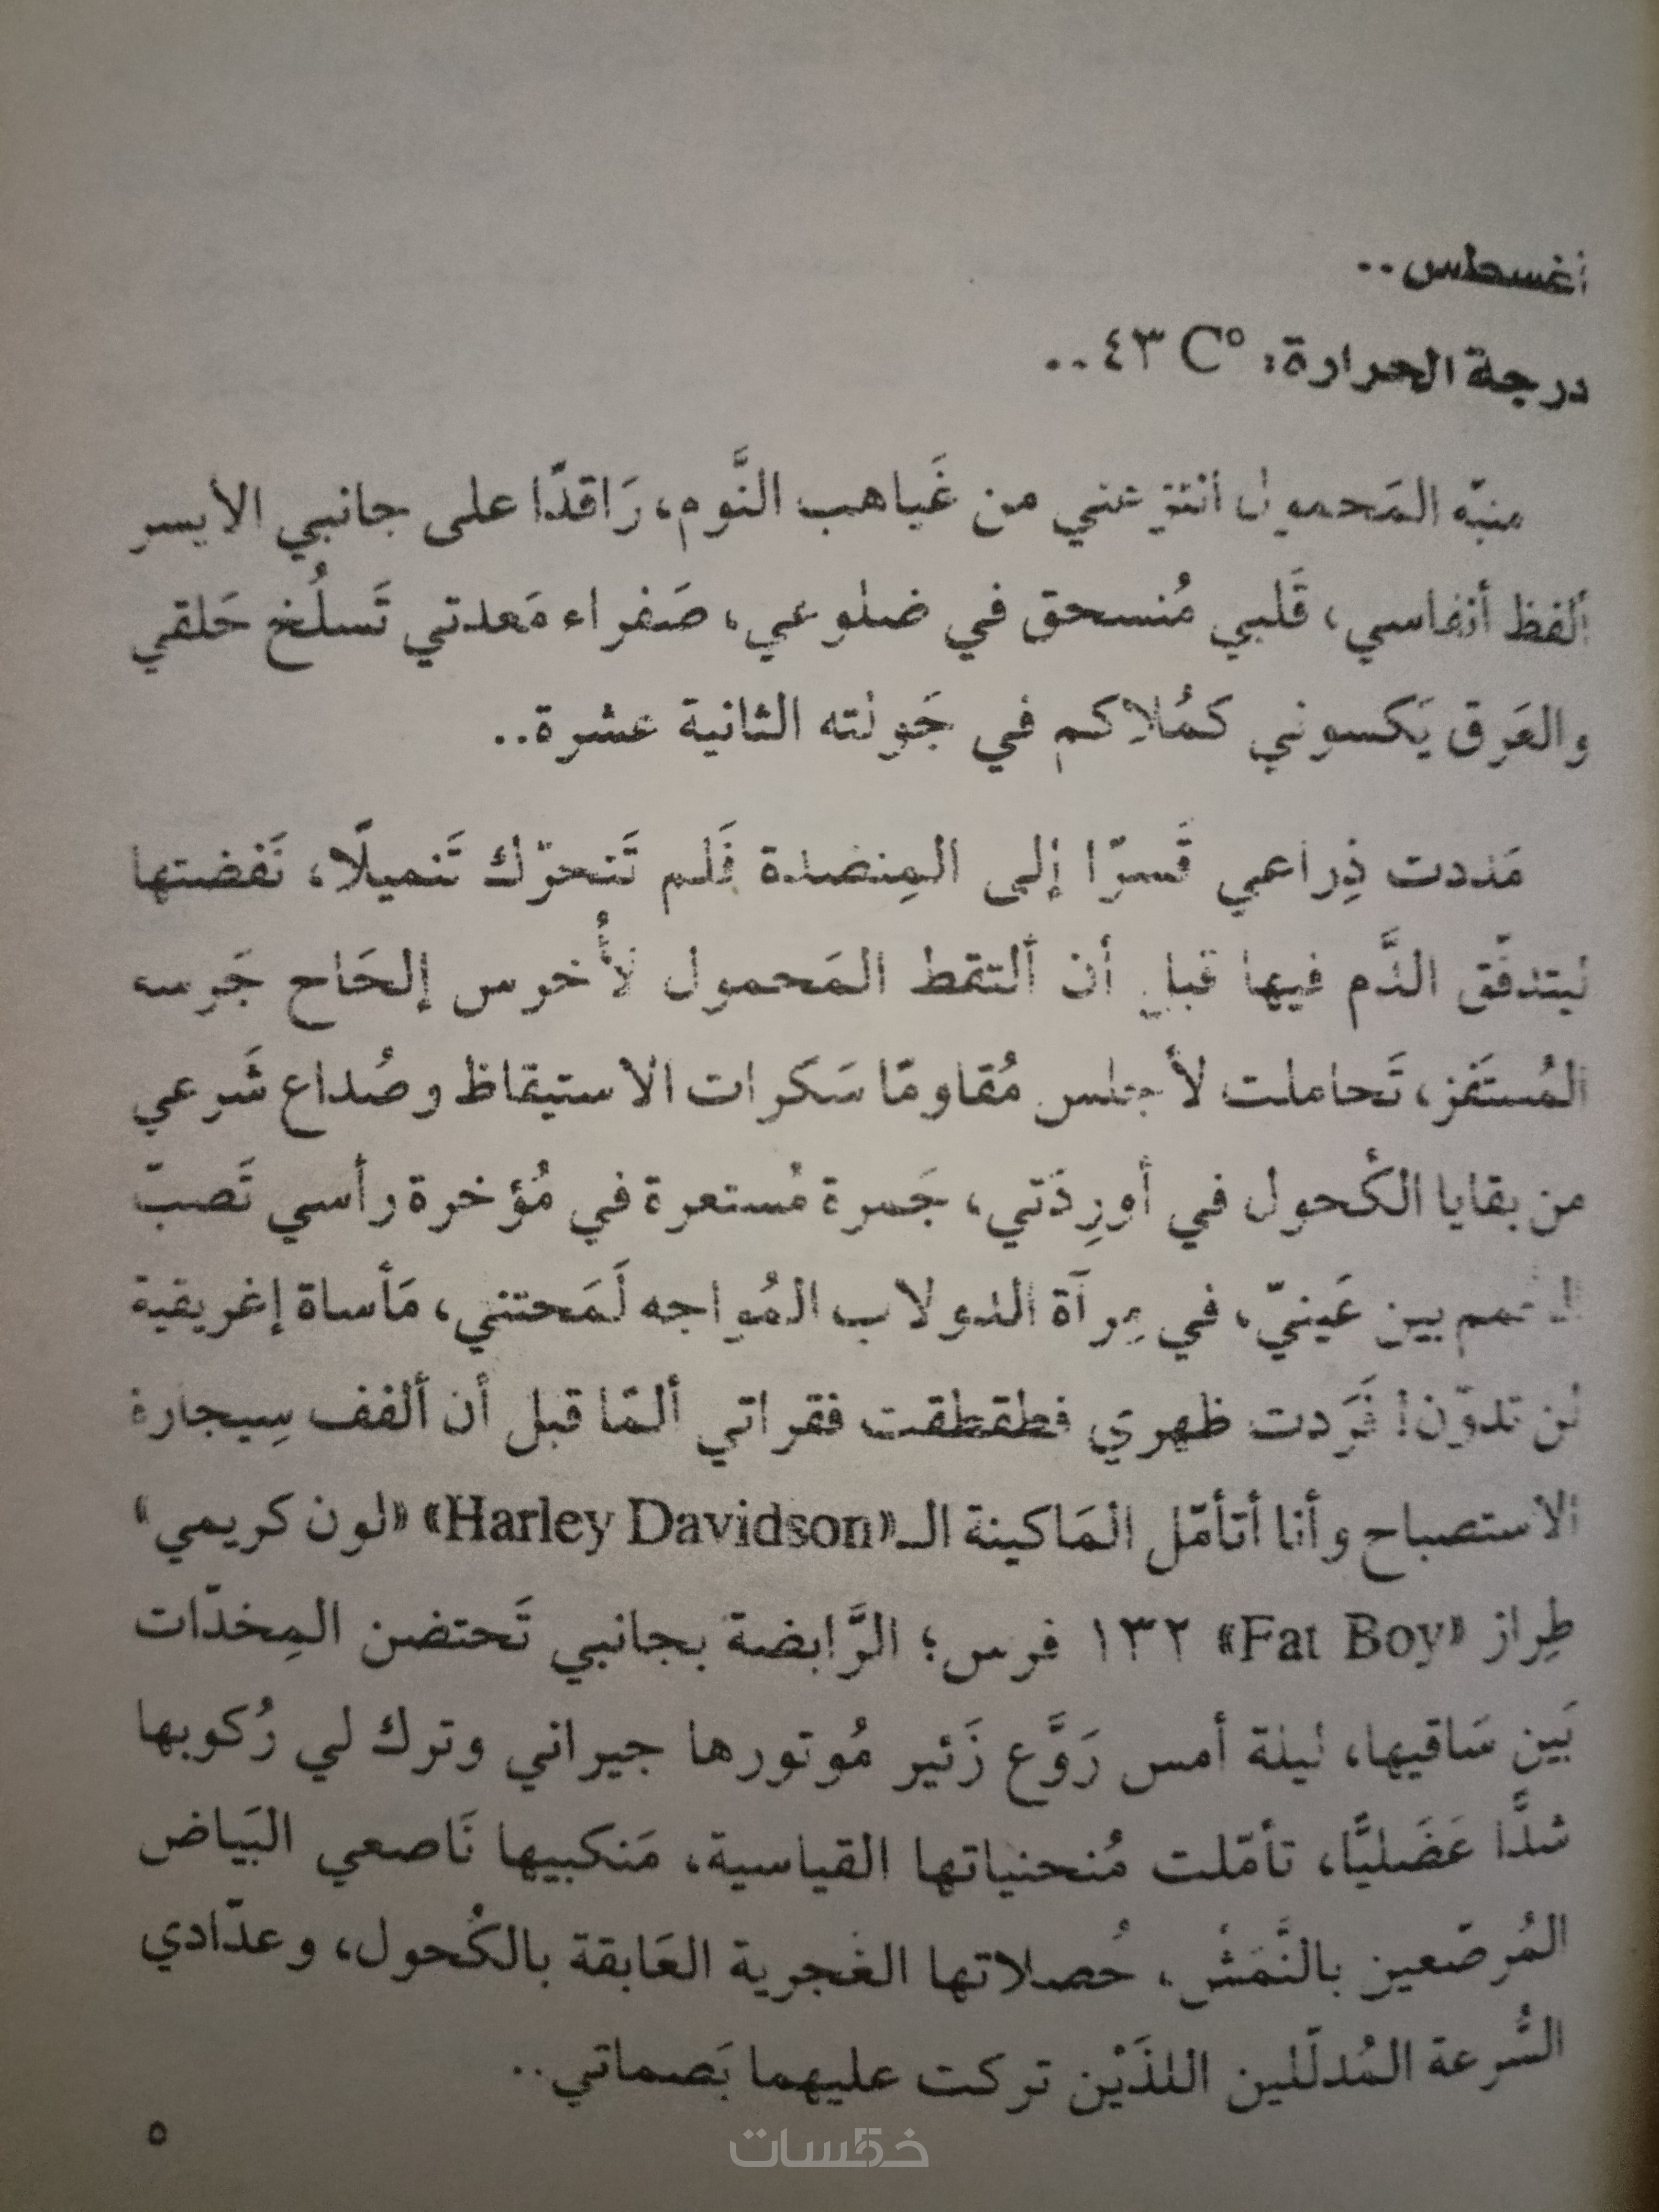 أغسطس..
درجة الحرارة: °C ٤٣..
منبّه المَحمول انتزعني من غَياهب النَّوم، رَاقدًا على جانبي الأيسر
ألفظ أنفاسي، قَلبي مُنسحق في ضلوعي، صَفراء مَعدتي تَسلُخ حَلقي
والعَرق يَكسوني كمُلاكم في جَولته الثانية عشرة..
مَددت ذِراعي قَسرًا إلى المِنضدة فَلم تَتحرّك تَنميلًا، نَفضتها
ليتدفّق الدَّم فيها قبل أن ألتقط المَحمول لأُخرس إلحَاح جَرسه
المُستَفز، تَحاملت لأجلس مُقاومًا سَكرات الاستيقاظ وصُداع شَرعي
من بقايا الكُحول في أورِدَتي، جَمرة مُستعرة في مُؤخرة رأسي تَصبّ
بين عَينيّ، في مِرآة الدولاب المُواجه لَمَحتني، مَأساة إغريقية
لن تدوّن! فَرَدت ظهري فطقطقت فقراتي ألمًا قبل أن ألفف سِيجارة
الاستصباح وأنا أتأمّل المَاكينة الـ«Harley Davidson» «لون كريمي»
طِراز «Fat Boy» ١٣٢ فرس؛ الرَّابضة بجانبي تَحتضن المِخدّات
بَين سَاقيها، ليلة أمس رَوَّع زَئير مُوتورها جيراني وترك لي رُكوبها
شدًّا عَضَليًّا، تأمّلت مُنحنياتها القياسية، مَنكبيها نَاصعي البَياض
المُرصّعين بالنَّمَش، خُصلاتها الغَجرية العَابقة بالكُحول، وعدّادي
السُّرعة المُدلّلين اللذَيْن تركت عليهما بَصماتي..
٥
خمسات